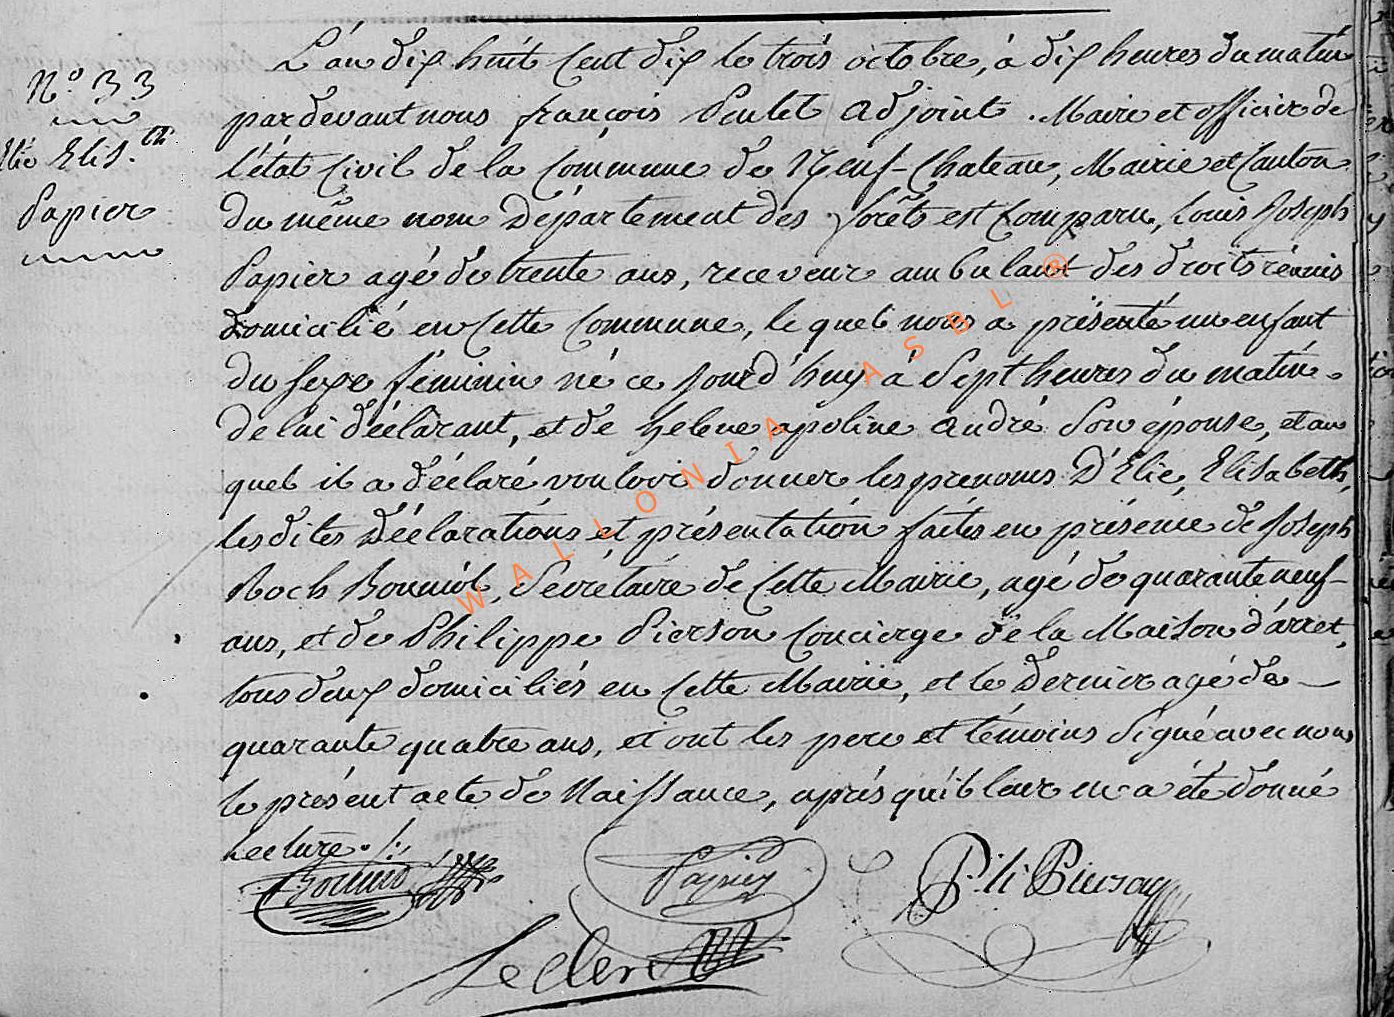 L'an dix huit cent dix le trois octobre, à dix heures du matin
N.° 33
pardevant nous françois Poulet adjoint Maire et officier de
Elie Elis.th
l'état Civil de la Commune de Neuf-Chateau, Mairie et Canton
Papier
du même nom Département des forêts est Comparu, Louis Joseph
Papier agé de trente ans, receveur ambulant des droits réunis
domicilié en Cette Commune, lequel nous a présenté un enfant
du sexe féminin né ce jourd'huy à Sept heures du matin
de lui déclarant, et de helene apoline andré Son épouse, et au
quel il a déclaré vouloir donner les prenoms D'Elie, Elisabeth,
les dites Déclarations et présentation faites en présence de Joseph
Roch Bonniol, Secrétaire de Cette Mairie, agé de quarante neuf
ans, et de Philippe Pierson Concierge de la Maison d'arret,
tous deux domiciliés en Cette Mairie, et le Dernier agé de
quarante quatre ans, et ont les pere et témoins Signé avec nous
le présent acte de Naissance, après qu'il leur en a été donné
Lecture ./.
Papier
P. li Pierson
Leclere
WALLONIA ASBL ®